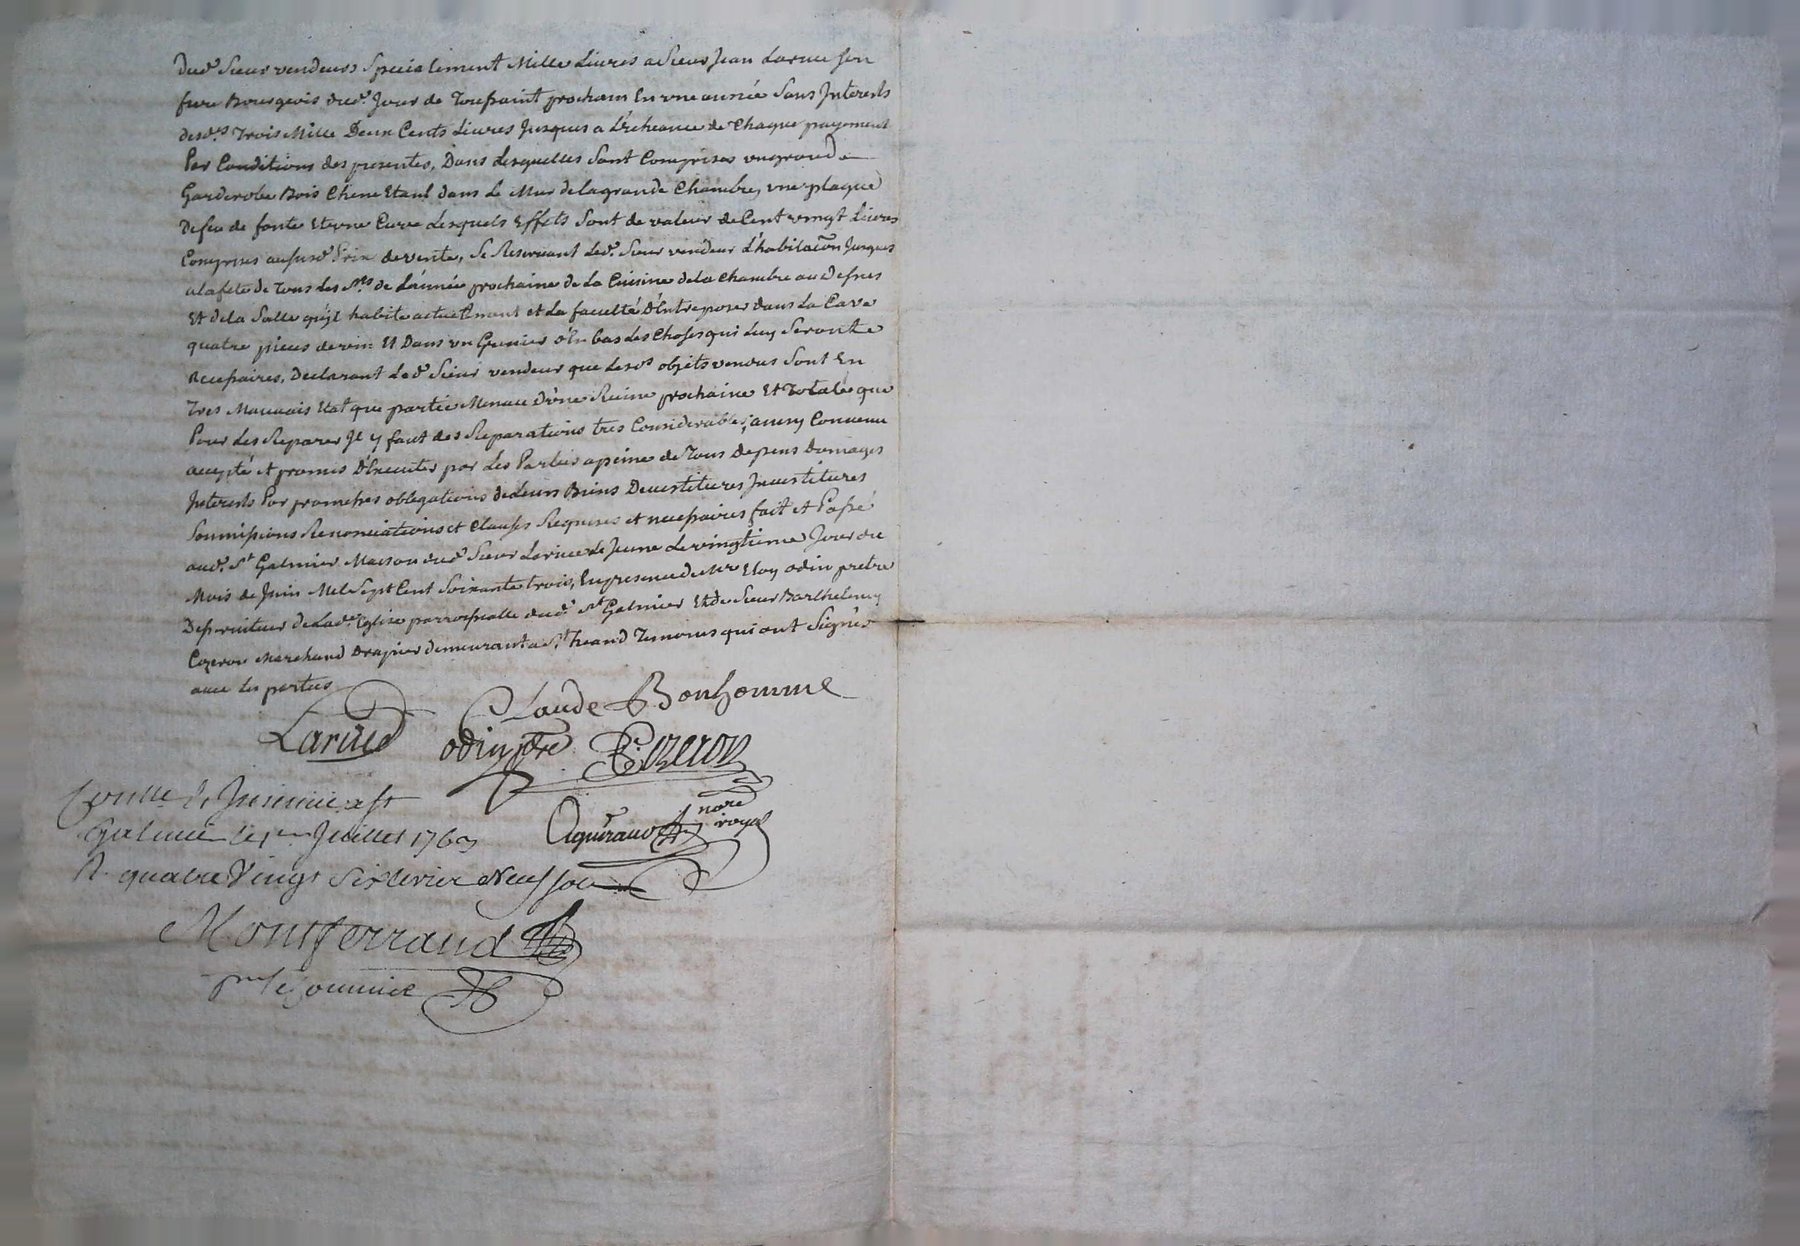 Dud. Sieur vendeurs Specialement Mille Livres a Sieur Jean Larue son
frere Bourgeois dud. Jour de Toussaint prochain En une année Sans Interests
desd.s Trois Mille Deux Cents Livres Jusques a L'echeance de Chaque payement
Par Conditions des presentes, Dans Lesquelles Sont Comprises un grand
Garderobe Bois Chene Etant dans Le Mur de la grande Chambre, une plaque
De feu de fonte Et une Cuve Lesquels Effets Sont de valeur de Cent vingt Livres
Comprises au susd. Prix de vente, Se Reservant Led. Sieur vendeur L'habitaon Jusques
a la fete de Tous Les Sts de L'année prochaine de La Cuisine de la Chambre au Dessus
Et de la Salle qu'il habite actuellement et La faculté D'Entreposer dans La Cave
quatre pieces de vin Et Dans un Grenier d'En bas Les Choses qui Luy Seront
necessaires, Declarant Led. Sieur vendeur que Lesd.s objets vendus Sont En
Tres Mauvais Etat que partie Menace D'une Ruine prochaine Et Totale que
Pour Les Reparer Il y faut des Reparations tres Considerables, ainsy Convenu
accepté et promis D'Executer par Les Parties a peine de Tous Depens Domages
Interests Par promesses obligations de Leurs Biens Devestitures Investitures
Soumissions Renonciations et Clauses Requises et necessaires fait et Passé
aud. St Galmier Maison dud. Sieur Larue Le Jeune Le vingtieme Jour du
Mois de Juin Mil Sept Cent Soixante trois, En presence de Mre Eloy odin pretre
Desserviteur de Lad. Eglise parroissialle dud. St Galmier Et de Sieur Barthelemy
Cozeron Marchand Drapier demeurant a St heand Temoins qui ont Signés
avec les parties
Claude Bonhomme
Larue odin ptre B. Cozeron
Controllé & Insinué a St
Galmier le 1er Juillet 1763
R. quatre Vingt Six livres Neuf sols
nore
royal
Montferrand
pr le commis